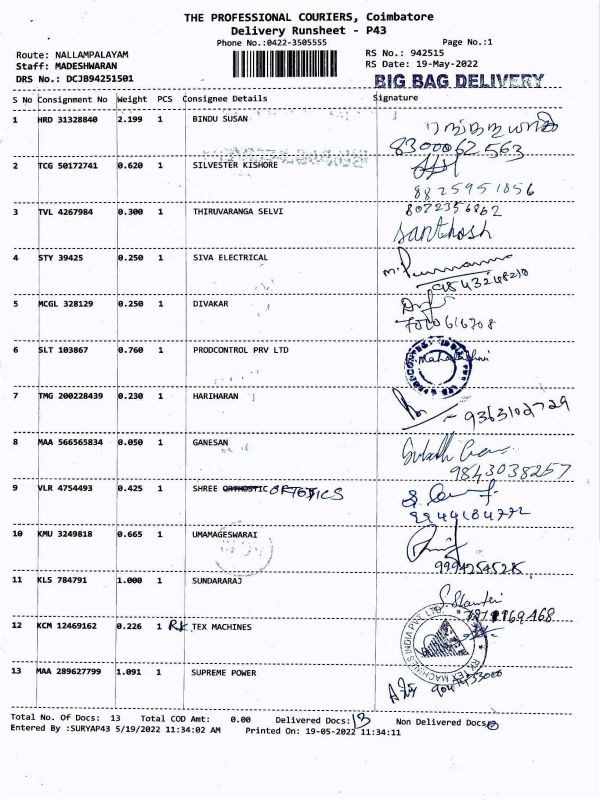 THE PROFESSIONAL COURIERS, Coimbatore
Delivery Runsheet - P43
Phone No.:0422-3505555 Page No.:1
Route: NALLAMPALAYAM RS No.: 942515
Staff: MADESHWARAN RS Date: 19-May-2022
DRS No.: DCJB94251501 BIG BAG DELIVERY
S No Consignment No Weight PCS Consignee Details Signature
1 HRD 31328840 2.199 1 BINDU SUSAN
8300062563
2 TCG 50172741 0.620 1 SILVESTER KISHORE
8825951856
3 TVL 4267984 0.300 1 THIRUVARANGA SELVI 8072356862
Santhosh
4 STY 39425 0.250 1 SIVA ELECTRICAL
9543248210
5 MCGL 328129 0.250 1 DIVAKAR
6 SLT 103867 0.760 1 PRODCONTROL PRV LTD
7 TMG 200228439 0.230 1 HARIHARAN
9363102729
8 MAA 566565834 0.050 1 GANESAN
9843038257
9 VLR 4754493 0.425 1 SHREE ORTHOSTIC ORTOTICS
10 KMU 3249818 0.665 1 UMAMAGESWARAI
11 KLS 784791 1.000 1 SUNDARARAJ
12 KCM 12469162 0.226 1 RK TEX MACHINES
RK TEX MACHINES INDIA PVT LTD
13 MAA 289627799 1.091 1 SUPREME POWER
Total No. Of Docs: 13 Total COD Amt: 0.00 Delivered Docs: 13 Non Delivered Docs: 0
Entered By :SURYAP43 5/19/2022 11:34:02 AM Printed On: 19-05-2022 11:34:11